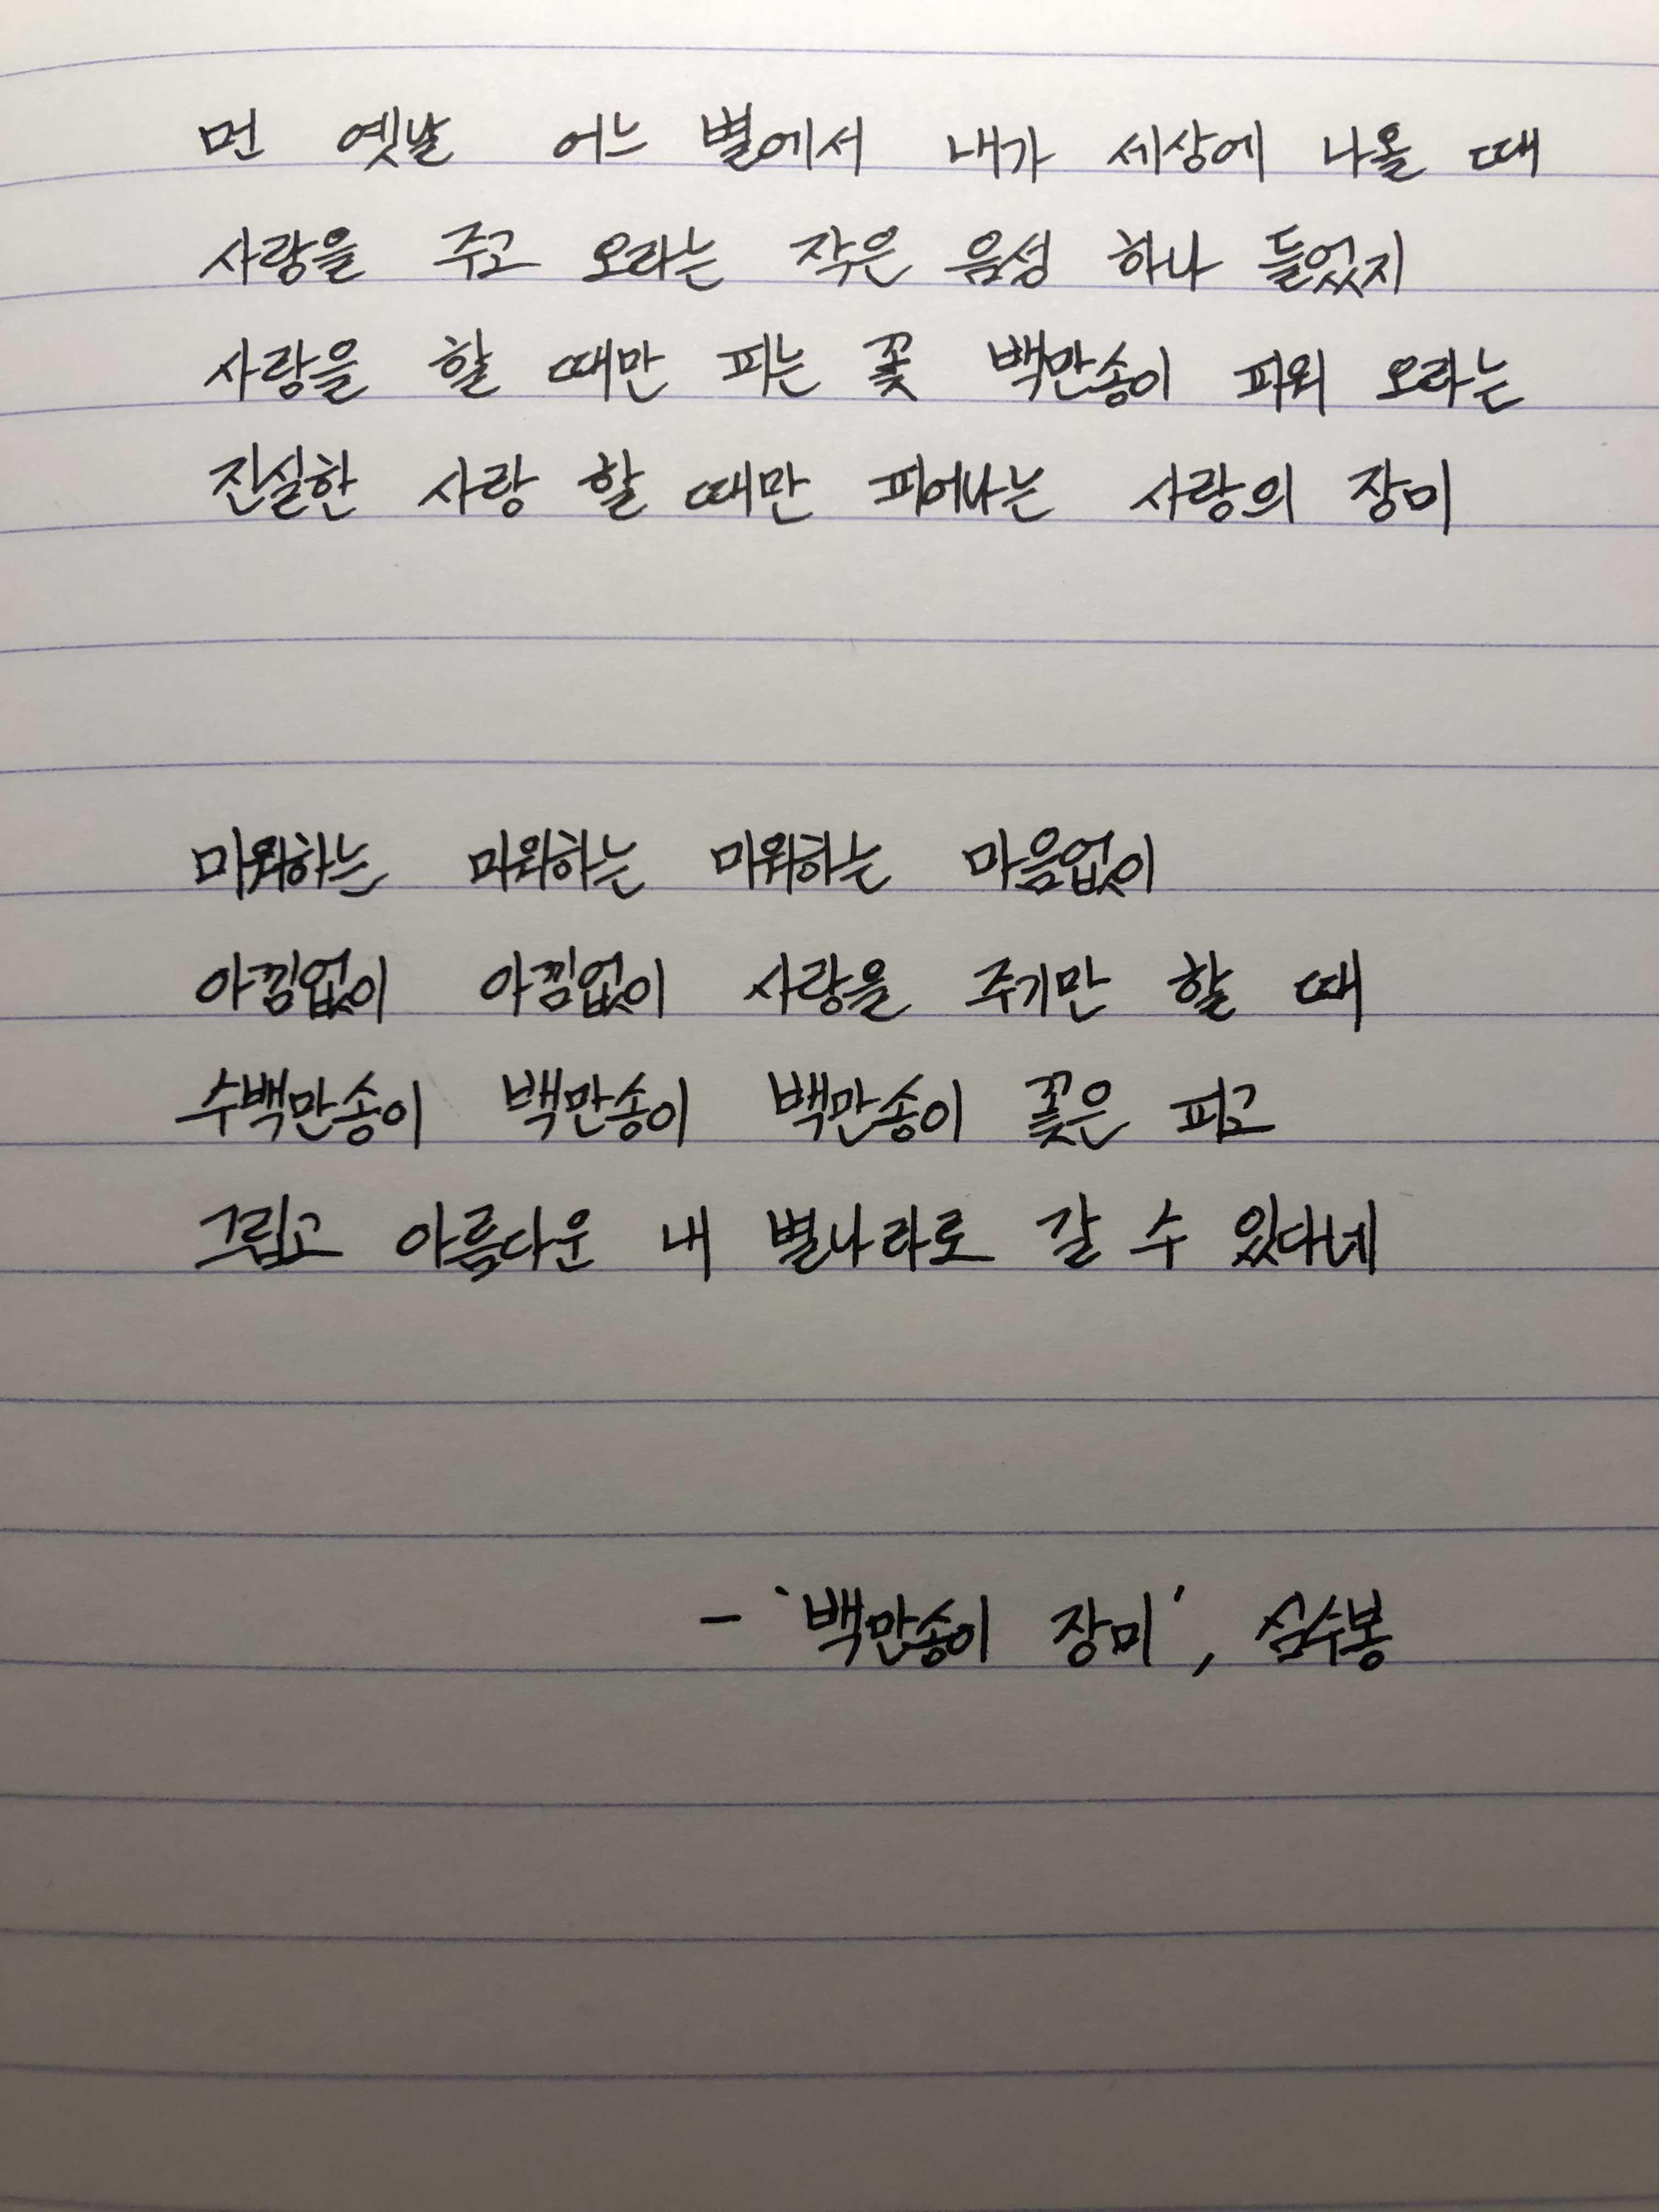 먼 옛날 어느 별에서 내가 세상에 나올 때
사랑을 주고 오라는 작은 음성 하나 들었지
사랑을 할 때만 피는 꽃 백만송이 피워 오라는
진실한 사랑 할 때만 피어나는 사랑의 장미
미워하는 미워하는 미워하는 마음없이
아낌없이 아낌없이 사랑을 주기만 할 때
수백만송이 백만송이 백만송이 꽃은 피고
그립고 아름다운 내 별나라로 갈 수 있다네
- '백만송이 장미', 심수봉